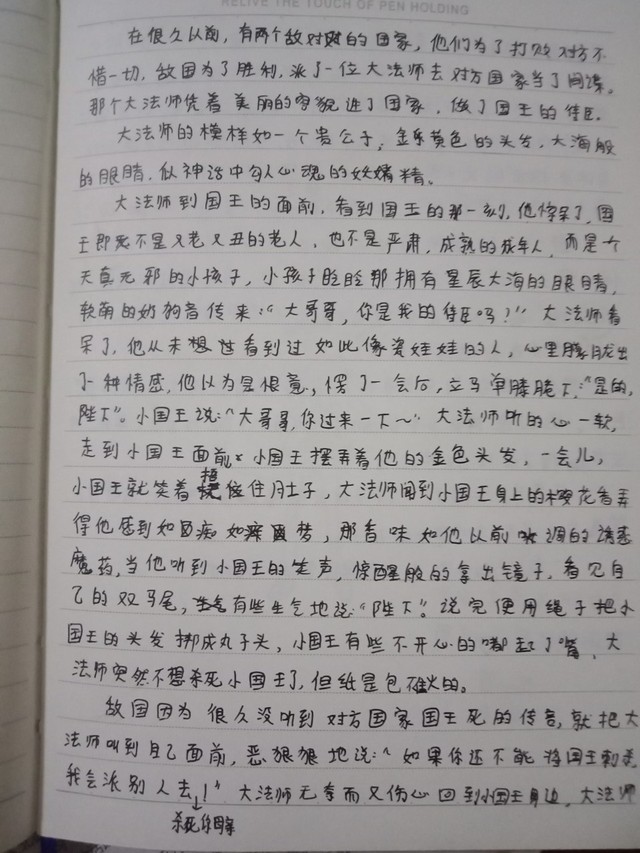 RELIVE THE TOUCH OF PEN HOLDING
在很久以前，有两个敌对的国家，他们为了打败对方不
惜一切，敌国为了胜利，派了一位大法师去对方国家当了间谍。
那个大法师凭着美丽的容貌进了国家，做了国王的侍臣.
大法师的模样如一个贵公子，金乐黄色的头发，大海般
的眼睛，似神话中勾人心魂的妖精。
大法师到国王的面前，看到国王的那一刻，他惊呆了，国
王即死不是又老又丑的老人，也不是严肃，成熟的成年人，而是个
天真无邪的小孩子，小孩子眨眨那拥有星辰大海的眼睛，
软萌的奶狗音传来：“大哥哥，你是我的侍臣吗？” 大法师看
呆了，他从未想过看到过如此像瓷娃娃的人，心里朦胧出
了一种情感，他以为是恨意，愣了一会后，立马单膝跪下：“是的，
陛下”。小国王说：“大哥哥，你过来一下～” 大法师听的心一软，
走到小国王面前，小国王摆弄着他的金色头发，一会儿，
小国王就笑着捂住肚子，大法师闻到小国王身上的樱花香弄
得他感到如痴如梦，那香味如他以前调的诱惑
魔药，当他听到小国王的笑声，惊醒般的拿出镜子，看见自
己的双马尾，有些生气地说：“陛下”。说完便用绳子把小
国王的头发绑成丸子头，小国王有些不开心的嘟起了嘴，大
法师突然不想杀死小国王了，但纸是包不住火的。
敌国因为很久没听到对方国家国王死的传言，就把大
法师叫到自己面前，恶狠狠地说：“如果你还不能将国王刺杀，
我会派别人去！” 大法师无奈而又伤心回到小国王身边，大法师
杀死你国王